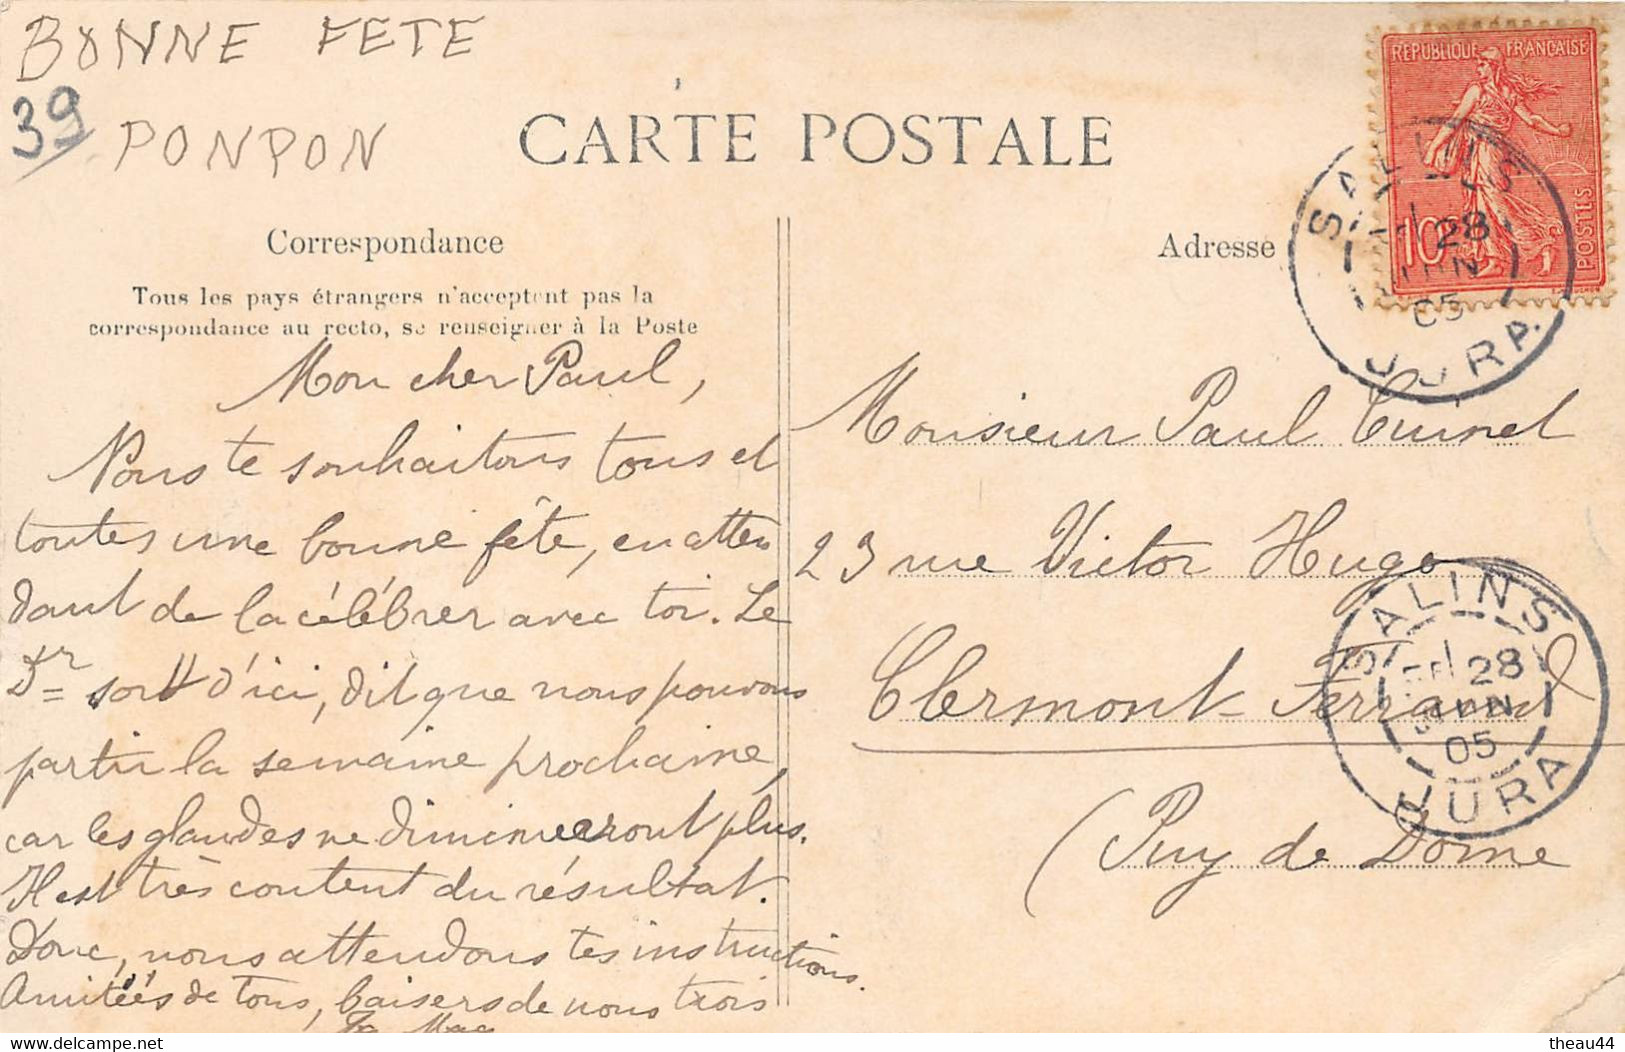 BONNE FETE
39
PONPON
CARTE POSTALE
REPUBLIQUE FRANÇAISE
10c
POSTES
SALINS
28
JUIN
05
JURA
Correspondance
Tous les pays étrangers n'acceptent pas la
correspondance au recto, se renseigner à la Poste
Mon cher Paul,
Nous te souhaitons tous et
toutes une bonne fête, en atten
dant de la célébrer avec toi. Le
Dr sort d'ici, dit que nous pouvons
partir la semaine prochaine,
car les glandes ne diminueront plus.
Il est très content du résultat.
Donc, nous attendons tes instructions.
Amitiés de tous, baisers de nous trois
Adresse
Monsieur Paul Cuinet
23 rue Victor Hugo
Clermont-Ferrand
(Puy de Dome
SALINS
28
JUIN
05
JURA
www.delcampe.net
theau44